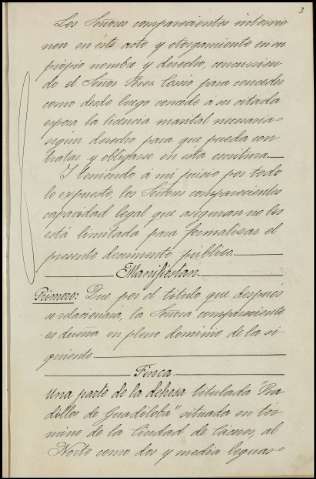 3
Los Señores comparecientes intervie
nen en éste acto y otorgamiento en su
propio nombre y derecho, concurrien-
do el Señor Perez Cosio para conceder
como desde luego concede a su citada
esposa la licencia marital necesaria
según derecho para que pueda con
tratar y obligarse en esta escritura.
Y teniendo a mi juicio por todo
lo expuesto, los Señores comparecientes
capacidad legal que aseguran no les
está limitada para formalizar el
presente documento público.
Manifiestan
Primero: Que por el título que después
se relacionara, la Señora compareciente
es dueña en pleno dominio de la si-
guiente
Finca
Una parte de la dehesa titulada "Ra-
dillos de Guadeloba" situada en tér-
mino de la Ciudad de Cáceres, al
Norte como dos y media leguas